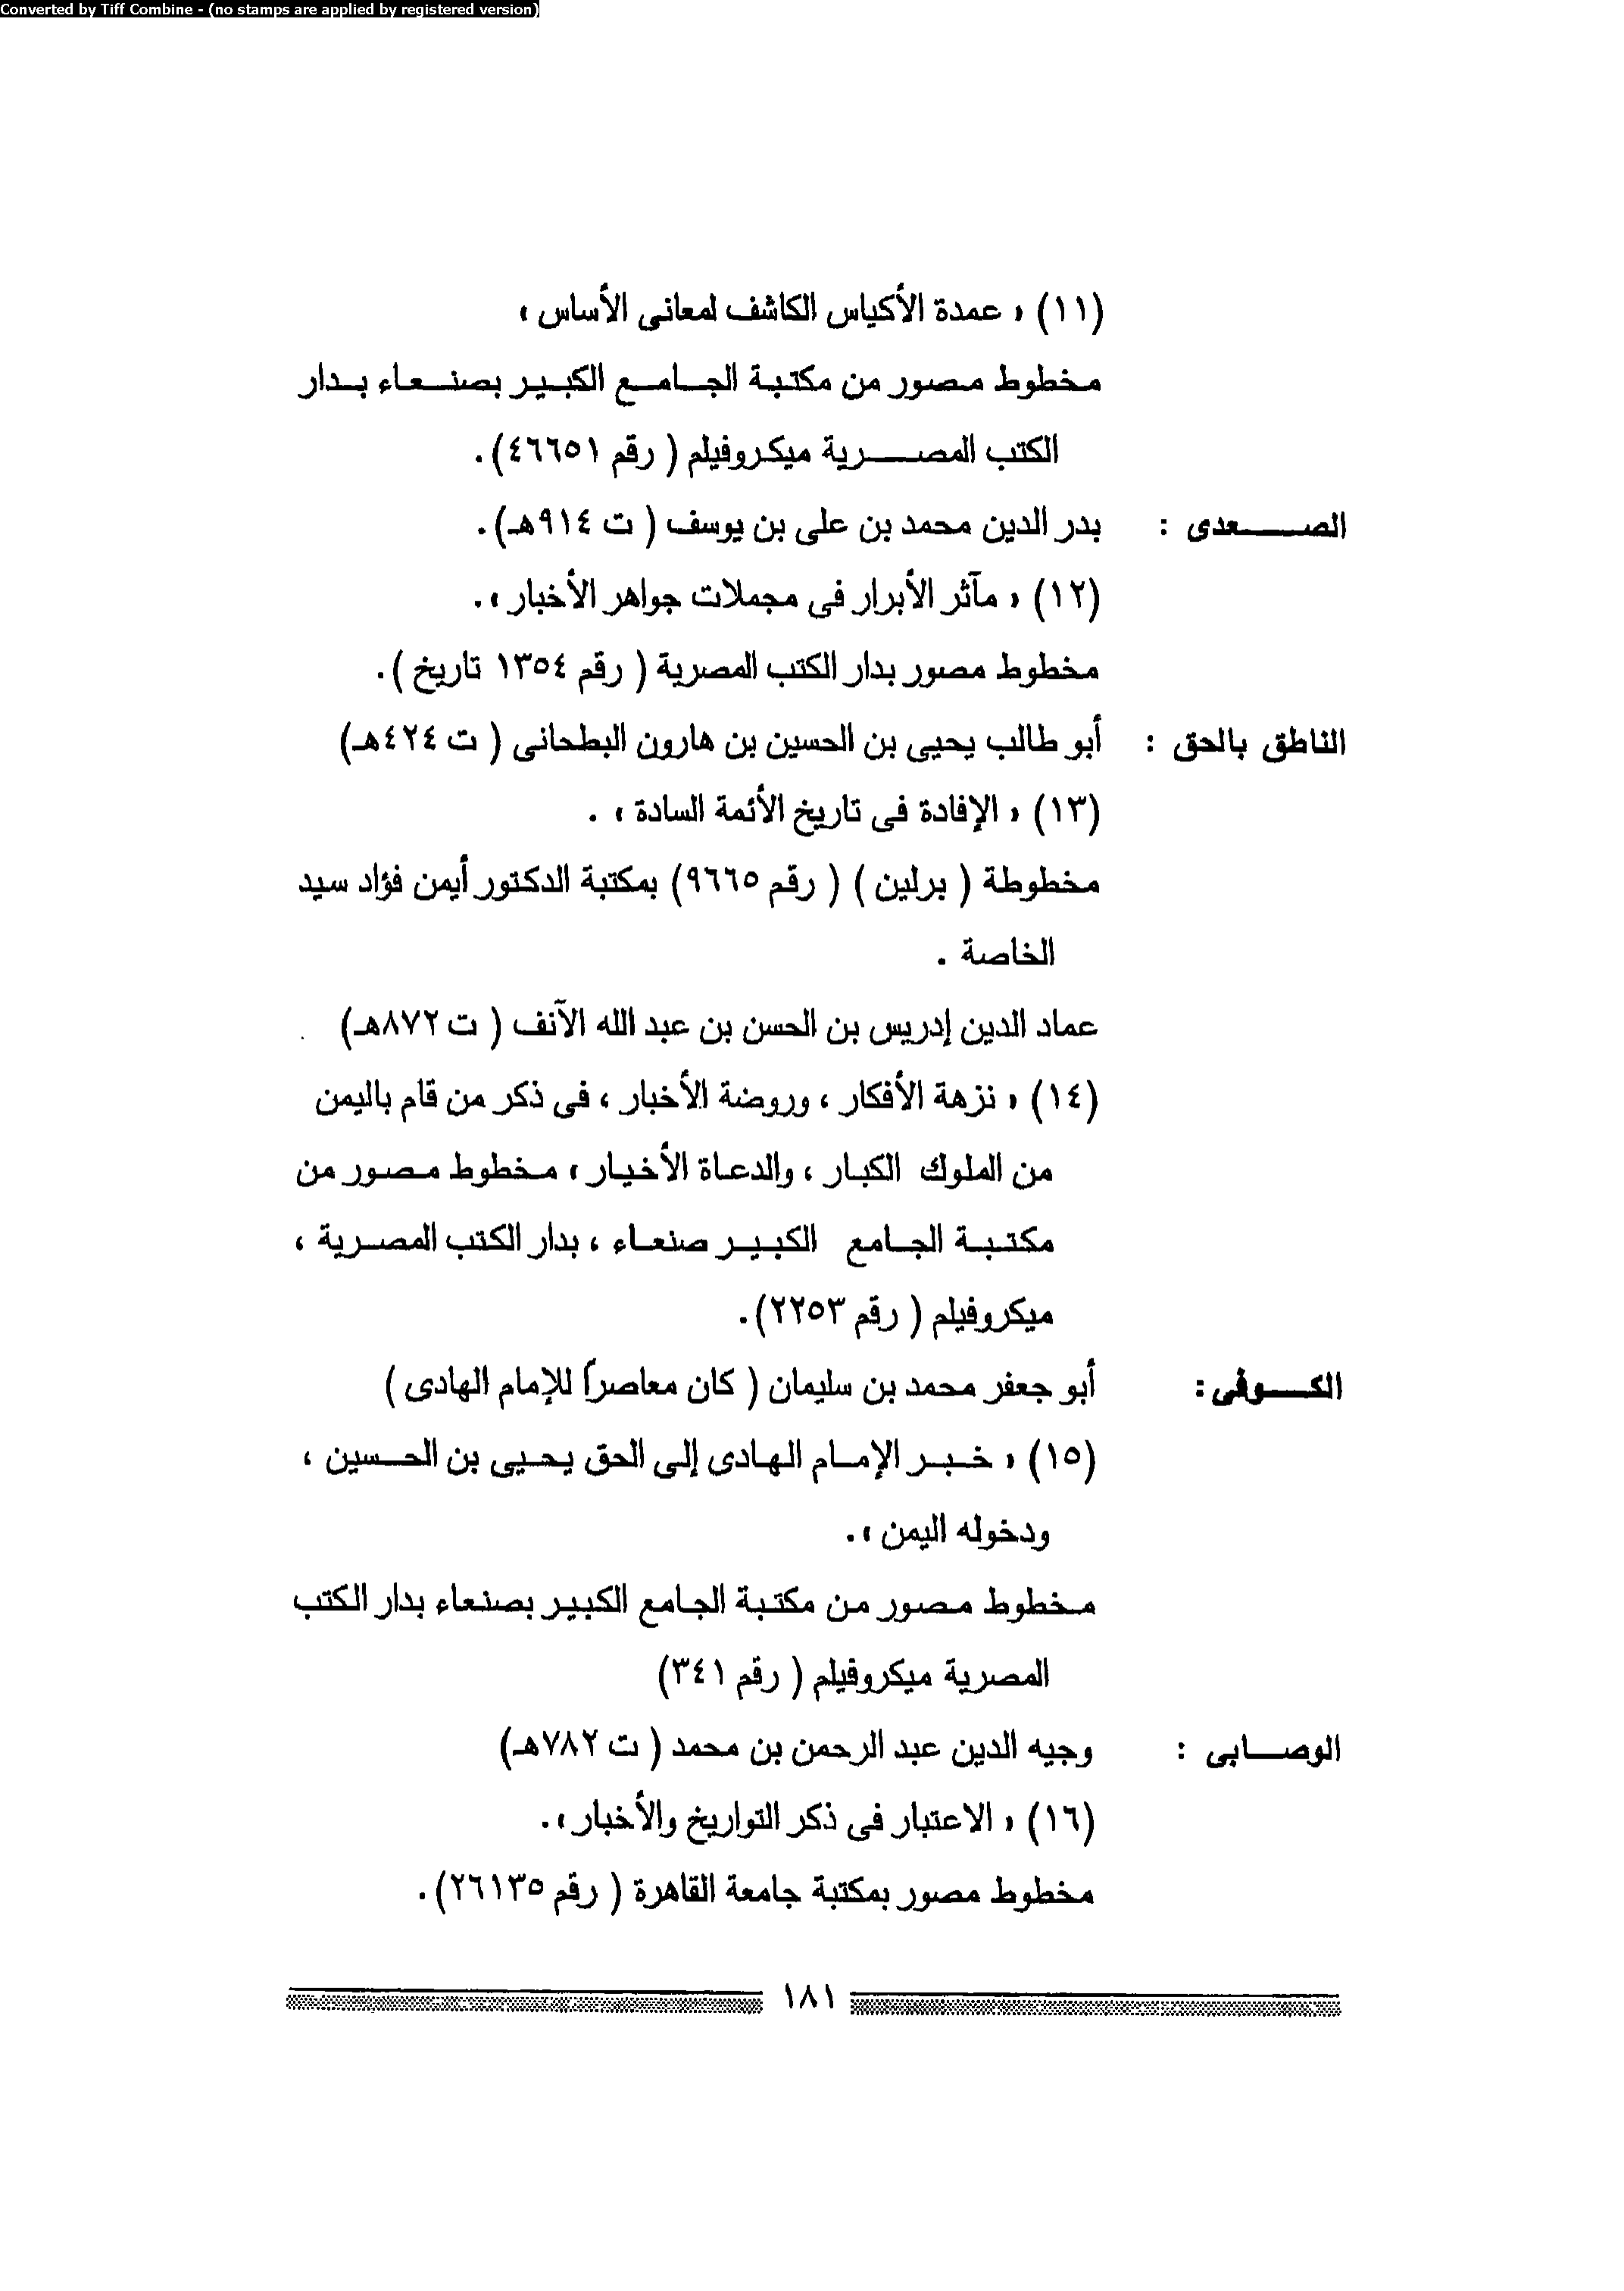 Converted by Tiff Combine - (no stamps are applied by registered version)
(١١) « عمدة الأكياس الكاشف لمعانى الأساس »
مخطوط مصور من مكتبة الجامع الكبير بصنعاء بدار
الكتب المصرية ميكروفيلم ( رقم ٤٦٦٥١).
الصعدى : بدر الدين محمد بن على بن يوسف ( ت ٩١٤هـ).
(١٢) « مآثر الأبرار فى مجملات جواهر الأخبار ».
مخطوط مصور بدار الكتب المصرية ( رقم ١٣٥٤ تاريخ ).
الناطق بالحق : أبو طالب يحيى بن الحسين بن هارون البطحانى ( ت ٤٢٤هـ)
(١٣) « الإفادة فى تاريخ الأئمة السادة » .
مخطوطة ( برلين ) ( رقم ٩٦٦٥) بمكتبة الدكتور أيمن فؤاد سيد
الخاصة .
عماد الدين إدريس بن الحسن بن عبد الله الآنف ( ت ٨٧٢هـ)
(١٤) « نزهة الأفكار ، وروضة الأخبار ، فى ذكر من قام باليمن
من الملوك الكبار ، والدعاة الأخيار » مخطوط مصور من
مكتبة الجامع الكبير صنعاء ، بدار الكتب المصرية ،
ميكروفيلم ( رقم ٢٢٥٣).
الكوفى : أبو جعفر محمد بن سليمان ( كان معاصراً للإمام الهادى )
(١٥) « خبر الإمام الهادى إلى الحق يحيى بن الحسين ،
ودخوله اليمن ».
مخطوط مصور من مكتبة الجامع الكبير بصنعاء بدار الكتب
المصرية ميكروفيلم ( رقم ٣٤١)
الوصابى : وجيه الدين عبد الرحمن بن محمد ( ت ٧٨٢هـ)
(١٦) « الاعتبار فى ذكر التواريخ والأخبار ».
مخطوط مصور بمكتبة جامعة القاهرة ( رقم ٢٦١٣٥).
١٨١